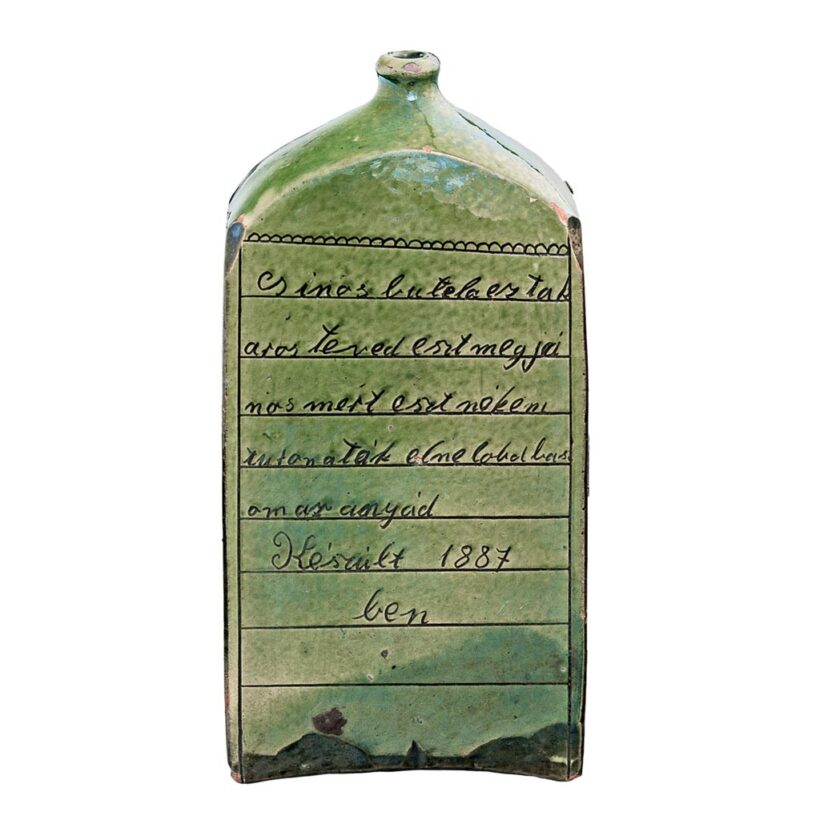 Csinos butela esz tak
aros teved eszt megjá
nos mért eszt nékem
tutonaták elne lobd bas
om az anyád
Készült 1887
ben